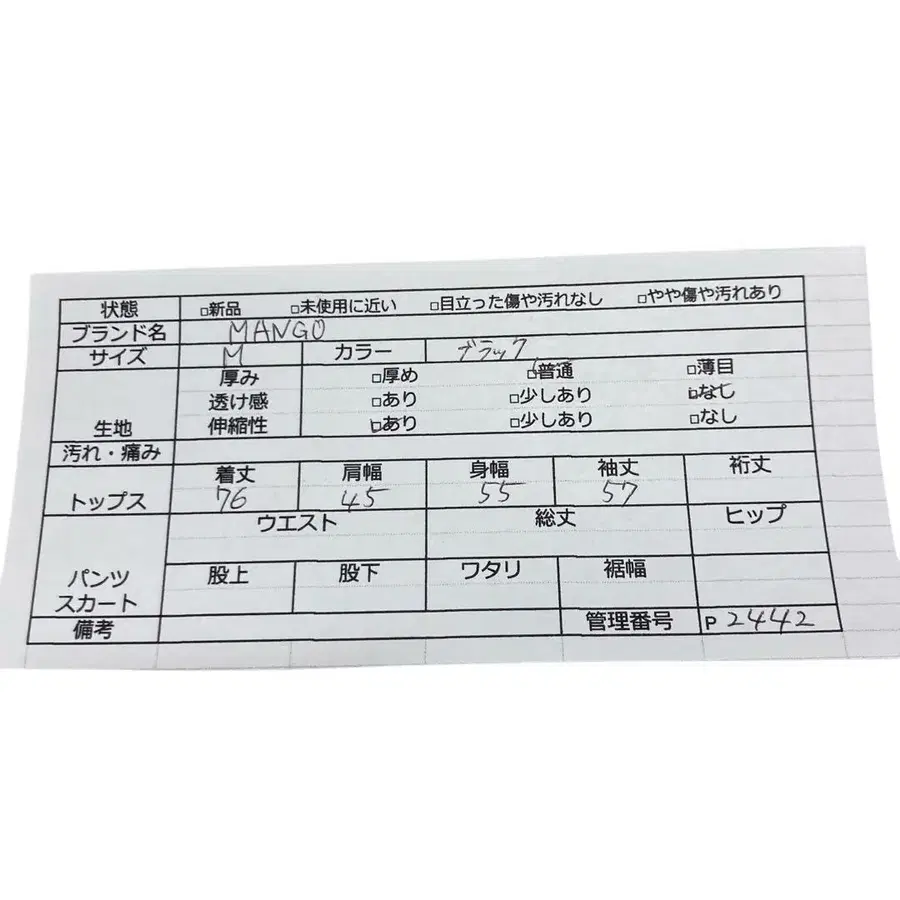 状態 □新品 □未使用に近い □目立った傷や汚れなし □やや傷や汚れあり
ブランド名 MANGO
サイズ M カラー ブラック
生地 厚み □厚め □普通 □薄目
透け感 □あり □少しあり □なし
伸縮性 □あり □少しあり □なし
汚れ・痛み
トップス 着丈 肩幅 身幅 袖丈 裄丈
76 45 55 57
パンツ スカート ウエスト 総丈 ヒップ
股上 股下 ワタリ 裾幅
備考 管理番号 P 2442